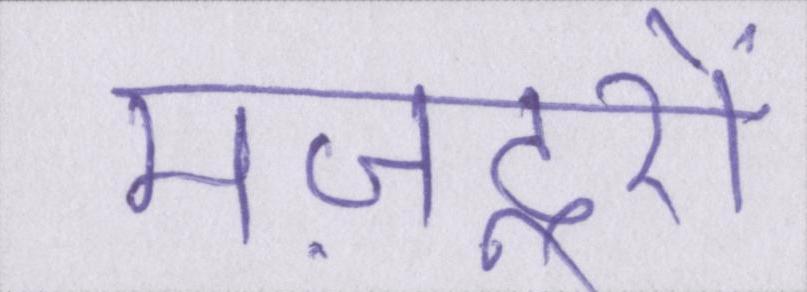 मज़दूरों